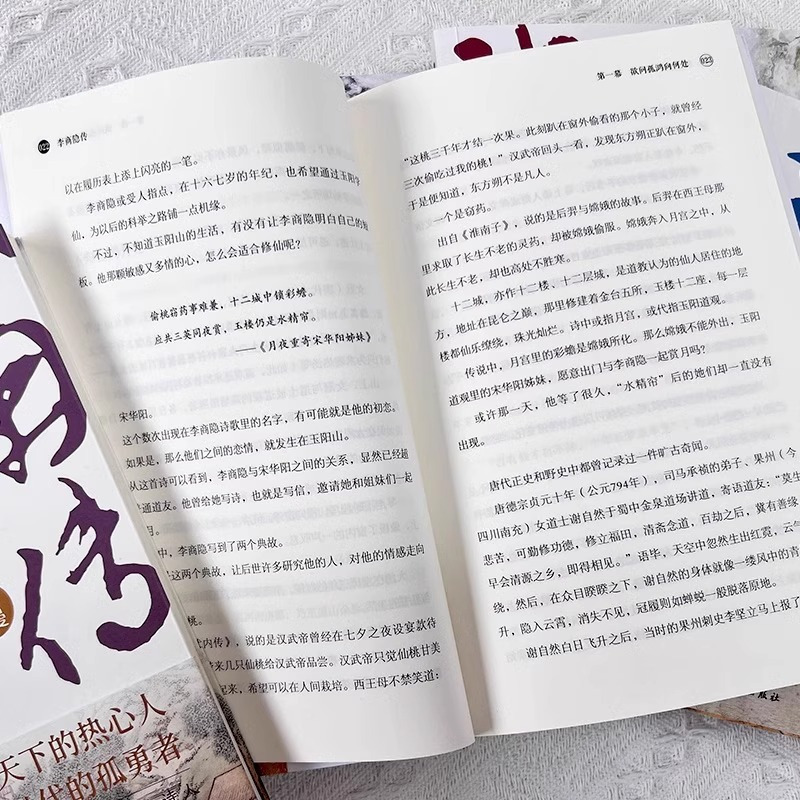 022 李商隐传
以在履历表上添上闪亮的一笔。
李商隐或受人指点，在十六七岁的年纪，也希望通过玉阳学
仙，为以后的科举之路铺一点机缘。
不过，不知道玉阳山的生活，有没有让李商隐明白自己的短
板。他那颗敏感又多情的心，怎么会适合修仙呢？
偷桃窃药事难兼，十二城中锁彩蟾。
应共三英同夜赏，玉楼仍是水精帘。
——《月夜重寄宋华阳姊妹》
宋华阳。
这个数次出现在李商隐诗歌里的名字，有可能就是他的初恋。
如果是，那么他们之间的恋情，就发生在玉阳山。
从这首诗可以看到，李商隐与宋华阳之间的关系，显然已经超
通道友。他曾给她写诗，也就是写信，邀请她和姐妹们一起
月。
中，李商隐写到了两个典故。
这两个典故，让后世许多研究他的人，对他的情感走向
桃。
内传》，说的是汉武帝曾经在七夕之夜设宴款待
来几只仙桃给汉武帝品尝。汉武帝只觉仙桃甘美
起来，希望可以在人间栽培。西王母不禁笑道：
第一幕 欲问孤鸿向何处 023
“这桃三千年才结一次果。此刻趴在窗外偷看的那个小子，就曾经
三次偷吃过我的桃！”汉武帝回头一看，发现东方朔正趴在窗外，
于是便知道，东方朔不是凡人。
一个是窃药。
出自《淮南子》，说的是后羿与嫦娥的故事。后羿在西王母那
里求取了长生不老的灵药，却被嫦娥偷服。嫦娥奔入月宫之中，从
此长生不老，却也高处不胜寒。
十二城，亦作十二楼、十二层城，是道教认为的仙人居住的地
方，地址在昆仑之巅，那里修建着金台五所，玉楼十二座，每一层
楼都仙乐缭绕，珠光灿烂。诗中或指月宫，或代指玉阳道观。
传说中，月宫里的彩蟾是嫦娥所化。那么嫦娥不能外出，玉阳
道观里的宋华阳姊妹，愿意出门与李商隐一起赏月吗？
或许那一天，他等了很久，“水精帘”后的她们却一直没有
出现。
唐代正史和野史中都曾记录过一件旷古奇闻。
唐德宗贞元十年（公元794年），司马承祯的弟子、果州（今
四川南充）女道士谢自然于蜀中金泉道场讲道，寄语道友：“莫生
悲苦，可勤修功德，修立福田，清斋念道，百劫之后，冀有善缘
早会清源之乡，即得相见。”语毕，天空中忽然生出红霓，云气
绕，然后，在众目睽睽之下，谢自然的身体就像一缕风中的青
升，隐入云霄，消失不见，冠履则如蝉蜕一般脱落原地。
谢自然白日飞升之后，当时的果州刺史李坚立马上报了
传
天下的热心人
代的孤勇者
版社